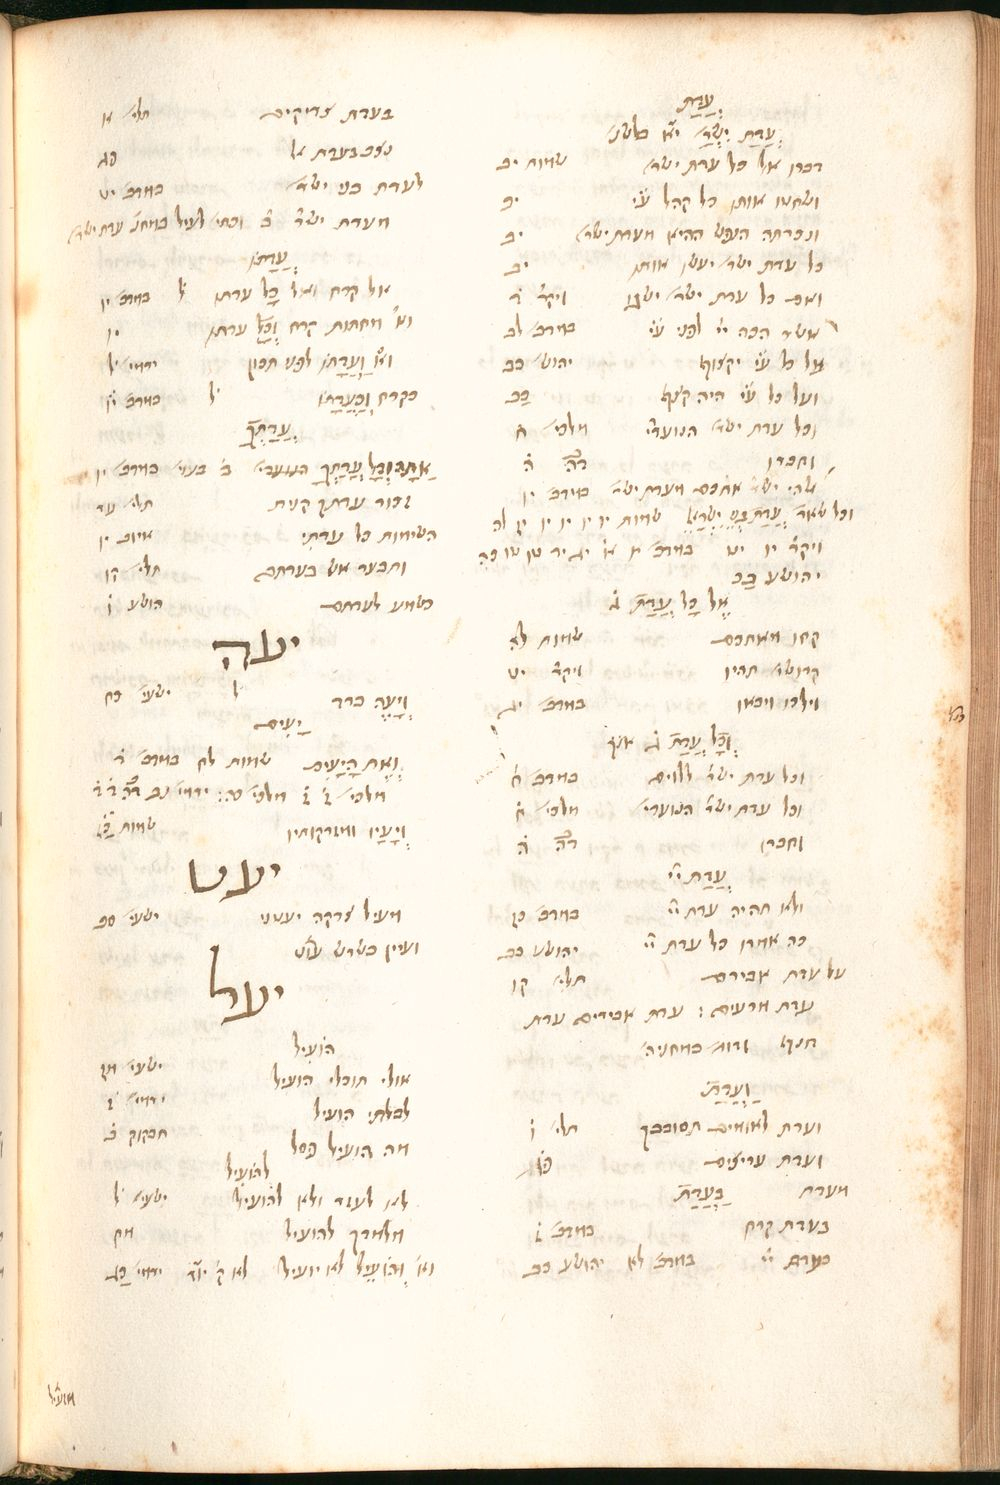 עֲדַת
עֲדַת יִשְׂרָ' י"א בלשו'
דברו אל כל עדת ישר' שמות יב
ושחטו אותו כל קהל ע"י יב
ונכרתה הנפש ההיא מעדת ישר' יב
כל עדת ישר' יעשו אותו יב
ואם כל עדת ישר' ישגו ויקר' ד
אשר הכה יי' לפני ע"י במדב' לב
אל כל ע"י יקצוף יהוש' כב
ועל כל ע"י היה קצף כב
וכל עדת ישר' הנועדי' מלכי' ח
וחברו דה' ה
אלהי ישר' אתכם מעדת ישר' במדב' יו
וכל שאר עֲדַת בְּנֵי יִשְׂרָאֵל שמות יו יו יו יו לה
ויקר' יו יט במדב' א יג יד
יהושע כב
אֶל כָּל עֲדַת ג
קחו מאתכם שמות לה
קדושי' תהיו ויקר' יט
וילכו ויבאו במדב' יג
וְכָל עֲדַת
וכל עדת ישר' ללוים במדב' ח
וכל עדת ישר' הנועדי' מלכי' ח
וחברו דה' ה
עֲדַת יי'
ולא תהיה עדת יי' במדב' כז
כה אמרו כל עדת יי' יהושע כב
על עדת אבירם תלי' קו
עדת מרעים : עדת אבירים עדת
חנף
וַעֲדַת
ועדת לאומים תסובבך תלי' ז
ועדת עריצים פו
מעדת בַּעֲדַת
בעדת קרח במדב' כז
בעדת יי' במדב' לא יהושע כב
בעדת צדיקים תלי' א
נצב בעדת אל פב
לעדת בני ישר' במדב' יט
מעדת ישר' ב' וכתי' לעיל במחנ' עדת ישר'
עֲדָתוֹ
אל קרח ואל כָּל עדתו ל' במדב' יו
וא' מחתות קרח וְכָל עדתו יו
וא' וַעֲדָתוֹ לפני תכון ירמי' ל
כקרח וְכַעֲדָתוֹ ל' במדב' יז
עֲדָתְךָ
אַתָּה וְכָל עֲדָתְךָ הנועדי' ב' בעני' במדב' יו
זכור עדתך קנית תלי' עד
השימות כל עדתי איוב יו
ותבער אש בעדתם תלי' קו
כשמע לעדתם הושע ז
יעה
וְיָעָה ברד ל' ישעי' כח
יָעִים
וְאֶת הַיָּעִים שמות לח במדב' ד
מלכי' ז' ז' מלכי' כה: ירמי' נב דה' ד' ד'
וְיָעָיו ומזרקותיו שמות כז
יעט
מעיל צדקה יעטני ישעי' סב
ועיין בשרש עט
יעל
הוֹעִיל
אולי תוכלי הועיל ישעי' מז
לבלתי הועיל
מה הועיל פסל חבקוק ב
לְהוֹעִיל
לא לעזר ולא להועיל ישעי' ל
מלמדך להועיל מח
וא' וְהוֹעֵיל לא יועיל ירמי' כג
מועיל